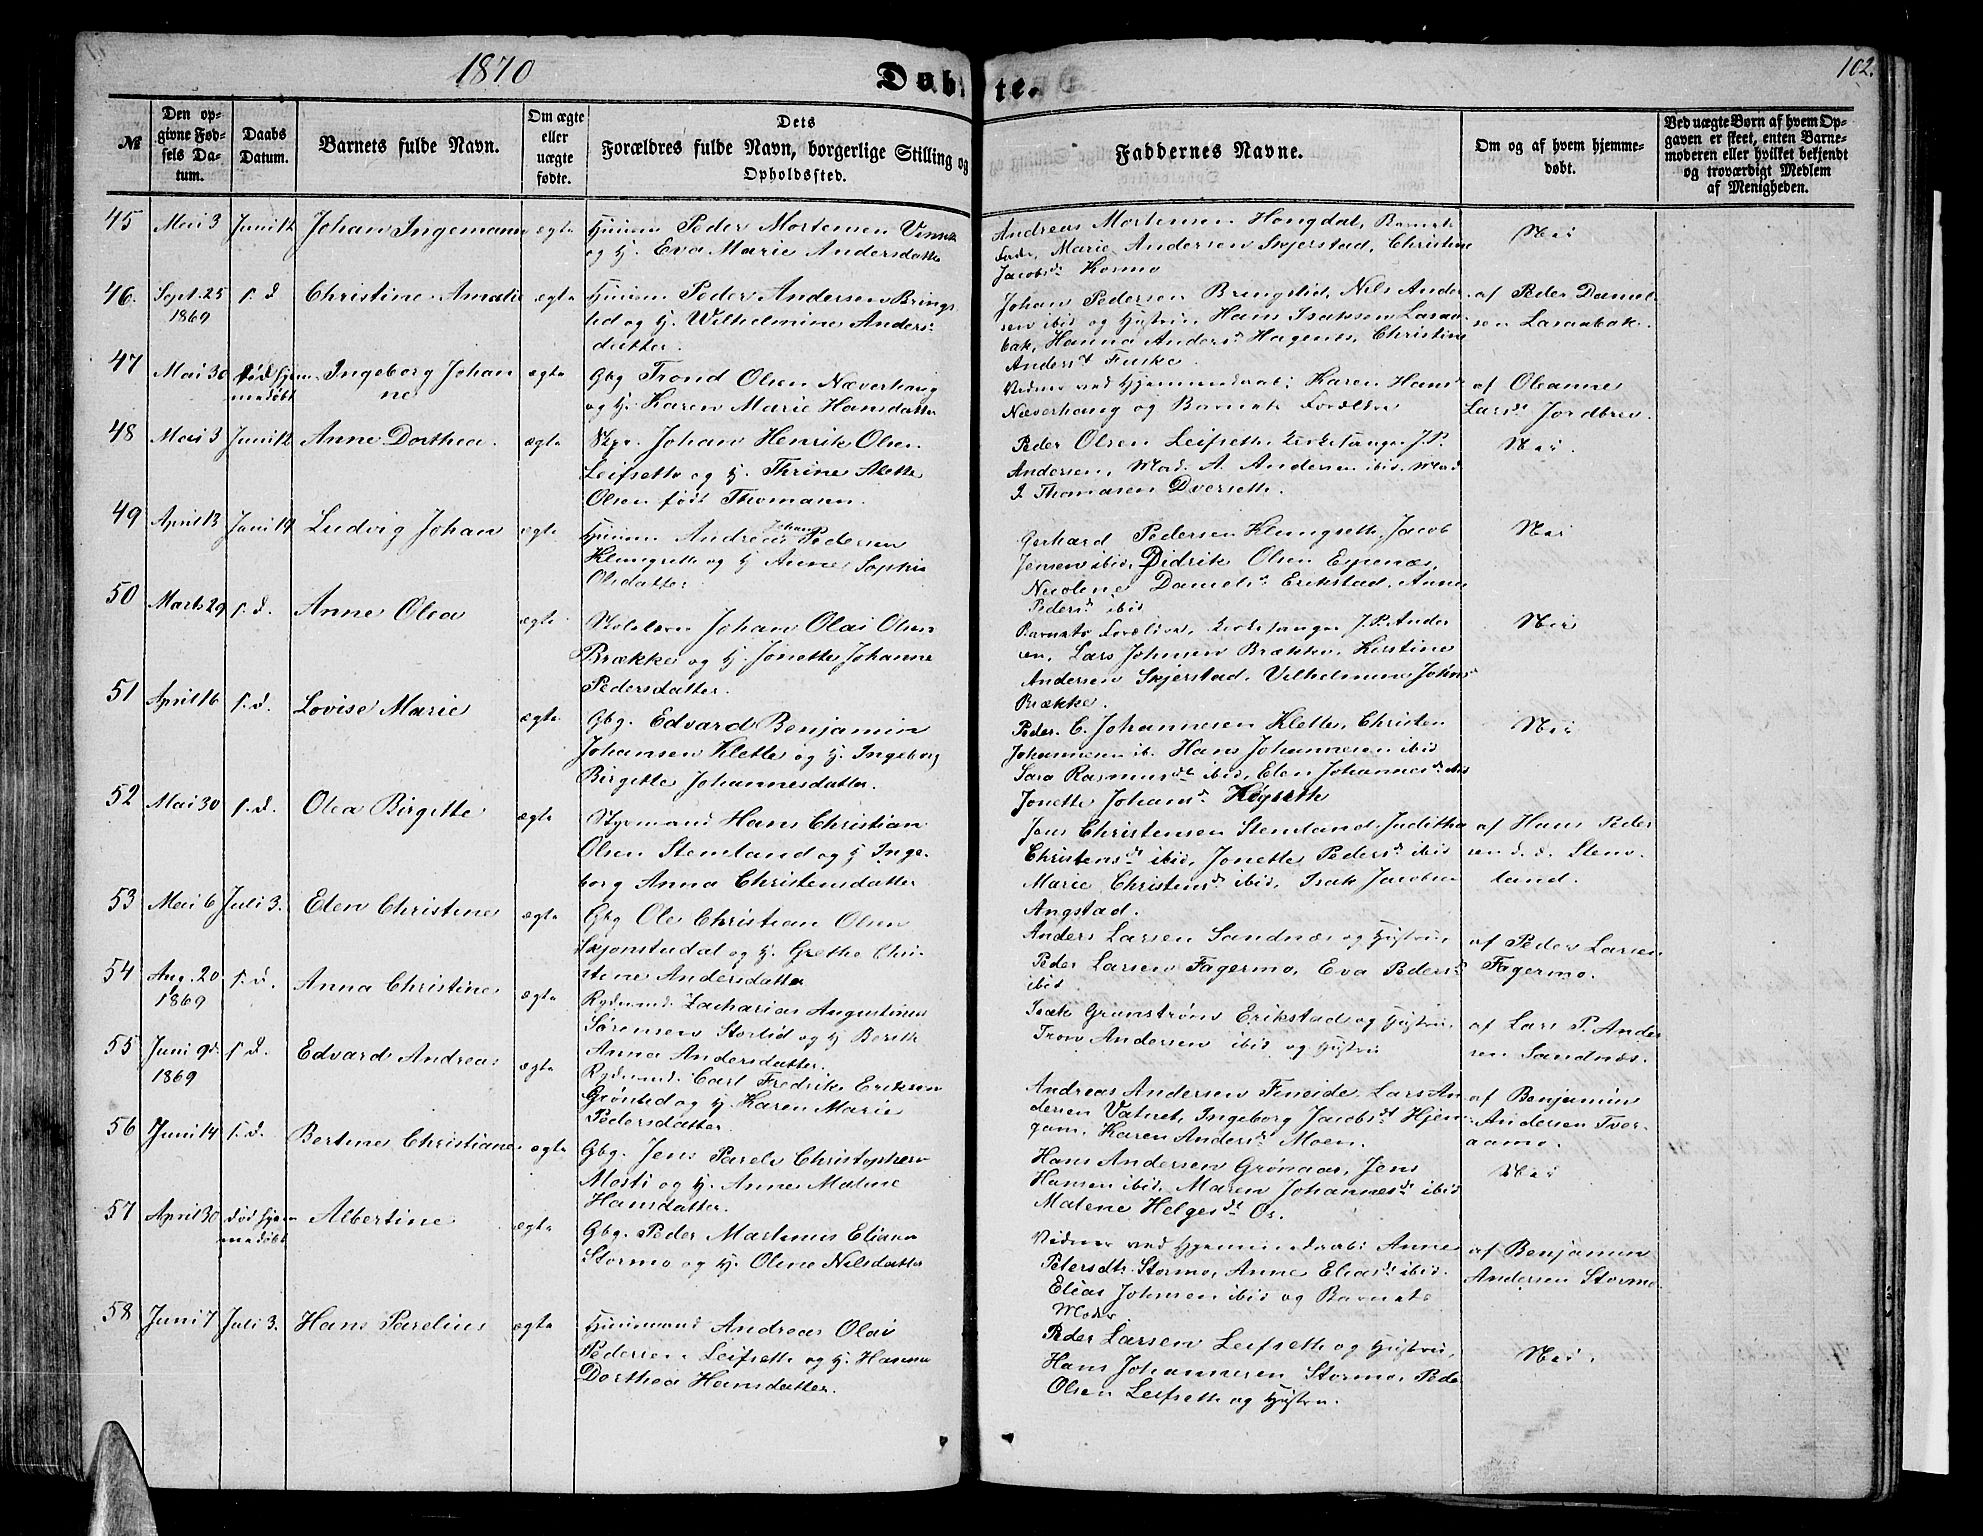 1870
Døbte.
102.
№
Den opgivne Fødsels Datum.
Daabs Datum.
Barnets fulde Navn.
Om ægte eller uægte fødte.
Dets Forældres fulde Navn, borgerlige Stilling og Opholdssted.
Faddernes Navne.
Om og af hvem hjemmedøbt.
Ved uægte Børn af hvem Opgaven er skeet, enten Barnemoderen eller hvilket bekjendt og troværdigt Medlem af Menigheden.
45 Mai 3 Juni 12 Johan Ingemann ægte
Huusm Peder Mortensen
og H. Eva Marie Andersdatter
Andreas Mortensen Hongdal, Barnets
Fader, Marie Andersen Skjerstad, Christine
Jacobsd. Kosmo
Nei
46. Sept. 25 1869 s. d. Christine Amalie ægte
Huusm Peder Andersen Brings
tad og H. Wilhelmine Anders
datter.
Johan Pedersen Bringstad, Nils Ander
sen ibid og Hustru, Hans Isaksen Laraa
bak, Hanna Andersd. Hagenes, Christine
Andersd. Fuske.
af Peder Daniel
sen Laraabak.
47 Mai 30 død hjem
medøbt Ingeborg Johan
ne ægte
Gbg Trond Olsen Næverhaug
og H. Karen Marie Hansdatter
Vidner ved Hjemmedaab: Karen Hansd.
Næverhaug og Barnets Forældre
af Oleanne
Larsd. Jordbrev.
48 Mai 3 Juni 12 Anne Dorthea. ægte
Johan Henrik Olsen
Leifsette og H. Thrine Mette
Olsen født Thomasen.
Peder Olsen Leifsette, Kirkesanger J. P.
Andersen, Mad. A. Andersen ibid, Mad
J. Thomasen Dversette.
Nei.
49 April 13 Juni 12 Ludvig Johan ægte
Huusm Andreas Johan Pedersen
Klungsette og H. Anne Sophie
Olsdatter.
Gerhard Pedersen Klungsette, Jacob
Jensen ibid, Didrik Olsen Espenæs,
Nicoline Danielsd. Erikstad, Anne
Pedersd. ibid
Nei
50 Marts 29 s. d. Anne Olea ægte
Johan Olai Olsen
Brække og H. Jonette Johanne
Pedersdatter.
Barnets Forældre, Kirkesanger J. P. Ander
sen, Lars Johnsen Brække, Kirstine
Andersen Skjerstad, Vilhelmine Johns
Brække.
Nei
51 April 16 s. d. Lovise Marie ægte
Gbg. Edvard Benjamin
Johansen Klette og H. Ingeborg
Birgitte Johannesdatter.
Peder C. Johannesen Klette, Christen
Johannesen ib. Hans Johannesen ibid
Sara Rasmusdt ibid, Elen Johannesd. ibid
Jonette Johansd. Høgsette
Nei
52 Mai 30 s. d. Olea Birgitte ægte
Styrmand Hans Christian
Olsen Stemland og H. Inge
borg Anna Christensdatter
Jens Christensen Stemland, Juditha
Christensd. ibid, Jonette Pedersd. ibid
Marie Christensd. ibid, Isak Jacobsen
Angstad.
af Hans Peder
sen d. d. Stem
land.
53 Mai 6 Juli 3. Elen Christine ægte
Gbg Ole Christian Olsen
Skjønstudal og H. Grethe Chri
stine Andersdatter
Anders Larsen Sandnæs og Hustru
Peder Larsen Fagermo, Eva Pedersd.
ibid
af Peder Larsen
Fagermo.
54 Aug. 20 1869 s. d. Anna Christine ægte
Rydmand. Zacharias Augustinus
Sørensen Storlid og H. Berith
Anna Andersdatter.
Isak Grønstrøm Erikstad og Hustru,
Tron Andersen ibid og Hustru
af Lars P. Ander
sen Sandnæs.
55 Juni 9d. 1869 s. d. Edvard Andreas ægte
Rydmand. Carl Fredrik Eriksen
Grønlid og H. Karen Marie
Pedersdatter.
Andreas Andersen Fineide, Lars An
dersen Vatnet, Ingeborg Jacobsdt Hjem
gam, Karen Andersd. Moen.
af Benjamin
Andersen Tver
aamo.
56 Juni 14 s. d. Bertine Christiane. ægte
Gbg. Jens Parels Christophersen
Mosti og H. Anne Malene
Hansdatter.
Hans Andersen Grønaas, Jens
Hansen ibid, Maren Johannesd. ibid
Malene Helgesdt Os.
Nei
57 April 30 død hjem
medøbt Albertine ægte
Gbg. Peder Martinus Eliasen
Stormo og H. Oline Nilsdatter
Vidner ved Hjemmedaab: Anne
Petersdt. Stormo, Anne Eliasd. ibid.
Elias Johnsen ibid og Barnets
Moder
af Benjamin
Andersen Stormo.
58 Juni 7 Juli 3. Hans Parelius ægte
Huusmand Andreas Olai
Pedersen Leifsette og H. Hanna
Dorthea Hansdatter.
Peder Larsen Leifsette og Hustru,
Hans Johannesen Stormo, Peder
Olsen Leifsette og Hustru.
Nei.